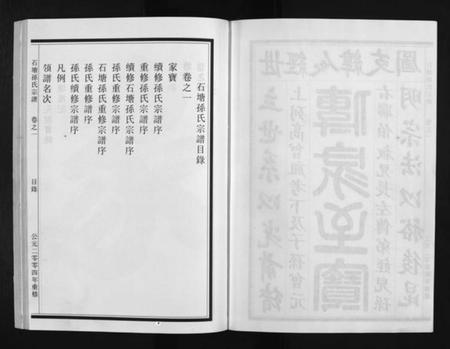 石塘孫氏宗譜目錄
卷之一
家寶
續修孫氏宗譜序
重修孫氏宗譜序
續修石塘孫氏宗譜序
孫氏重修宗譜序
石塘孫氏重修宗譜序
孫氏重修譜序
孫氏續修宗譜序
凡例
領譜名次
石塘孫氏宗譜 卷之一 目錄 公元二零零四年重修
傳家至寶
明宗法以裕後昆